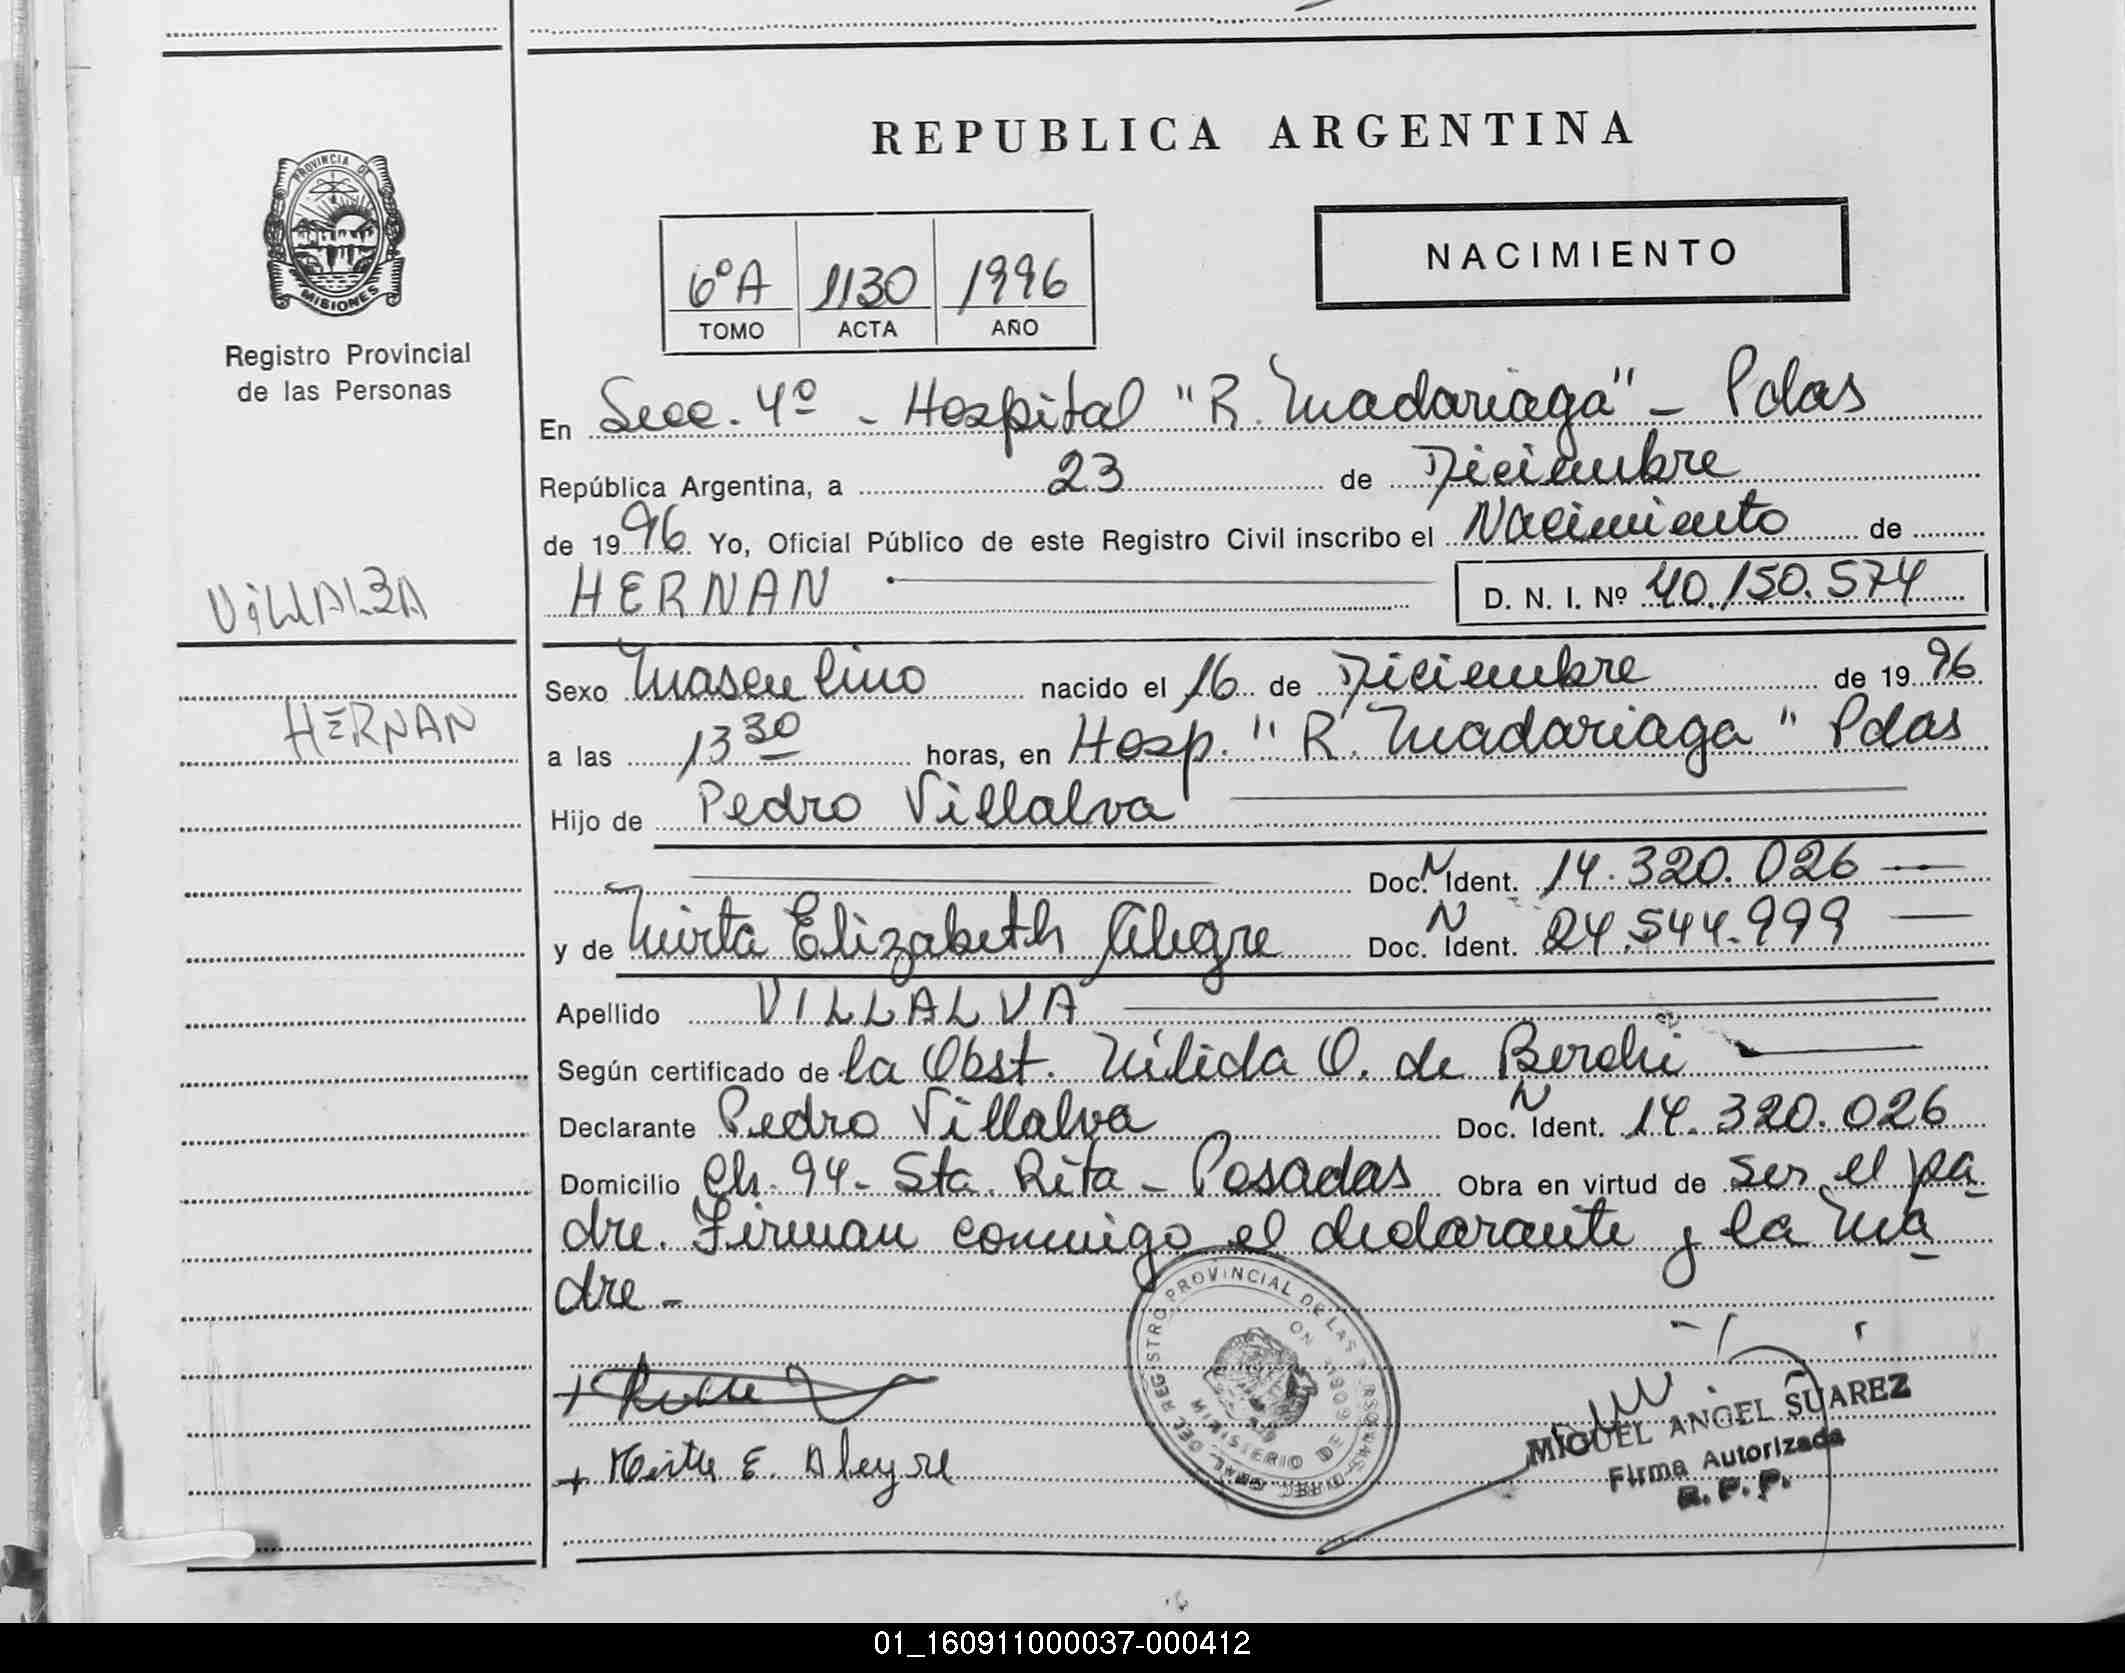 REPUBLICA ARGENTINA
PROVINCIA DE
MISIONES
Registro Provincial
de las Personas
6º A 1130 1996
TOMO ACTA AÑO
NACIMIENTO
En Secc. 4º - Hospital "R. Madariaga" - Pdas
República Argentina, a 23 de Diciembre
de 1996 Yo, Oficial Público de este Registro Civil inscribo el Nacimiento de
HERNAN D. N. I. Nº 40.150.574
VILLALBA
HERNAN
Sexo Masculino nacido el 16 de Diciembre de 1996
a las 13 30 horas, en Hosp. "R. Madariaga" Pdas
Hijo de Pedro Villalva
Doc. N Ident. 14.320.026
y de Mirta Elizabeth Alegre Doc. N Ident. 24.544.999
Apellido VILLALVA
Según certificado de la Obst. Nélida O. de
Declarante Pedro Villalva Doc. N Ident. 14.320.026
Domicilio Ch. 94 - Sta. Rita - Posadas Obra en virtud de ser el pa-
dre. Firman conmigo el declarante y la ma-
dre -
+ Mirta E. Alegre
REGISTRO PROVINCIAL DE LAS PERSONAS
MINISTERIO DE
MIGUEL ANGEL SUAREZ
Firma Autorizada
R. P. P.
01_160911000037-000412